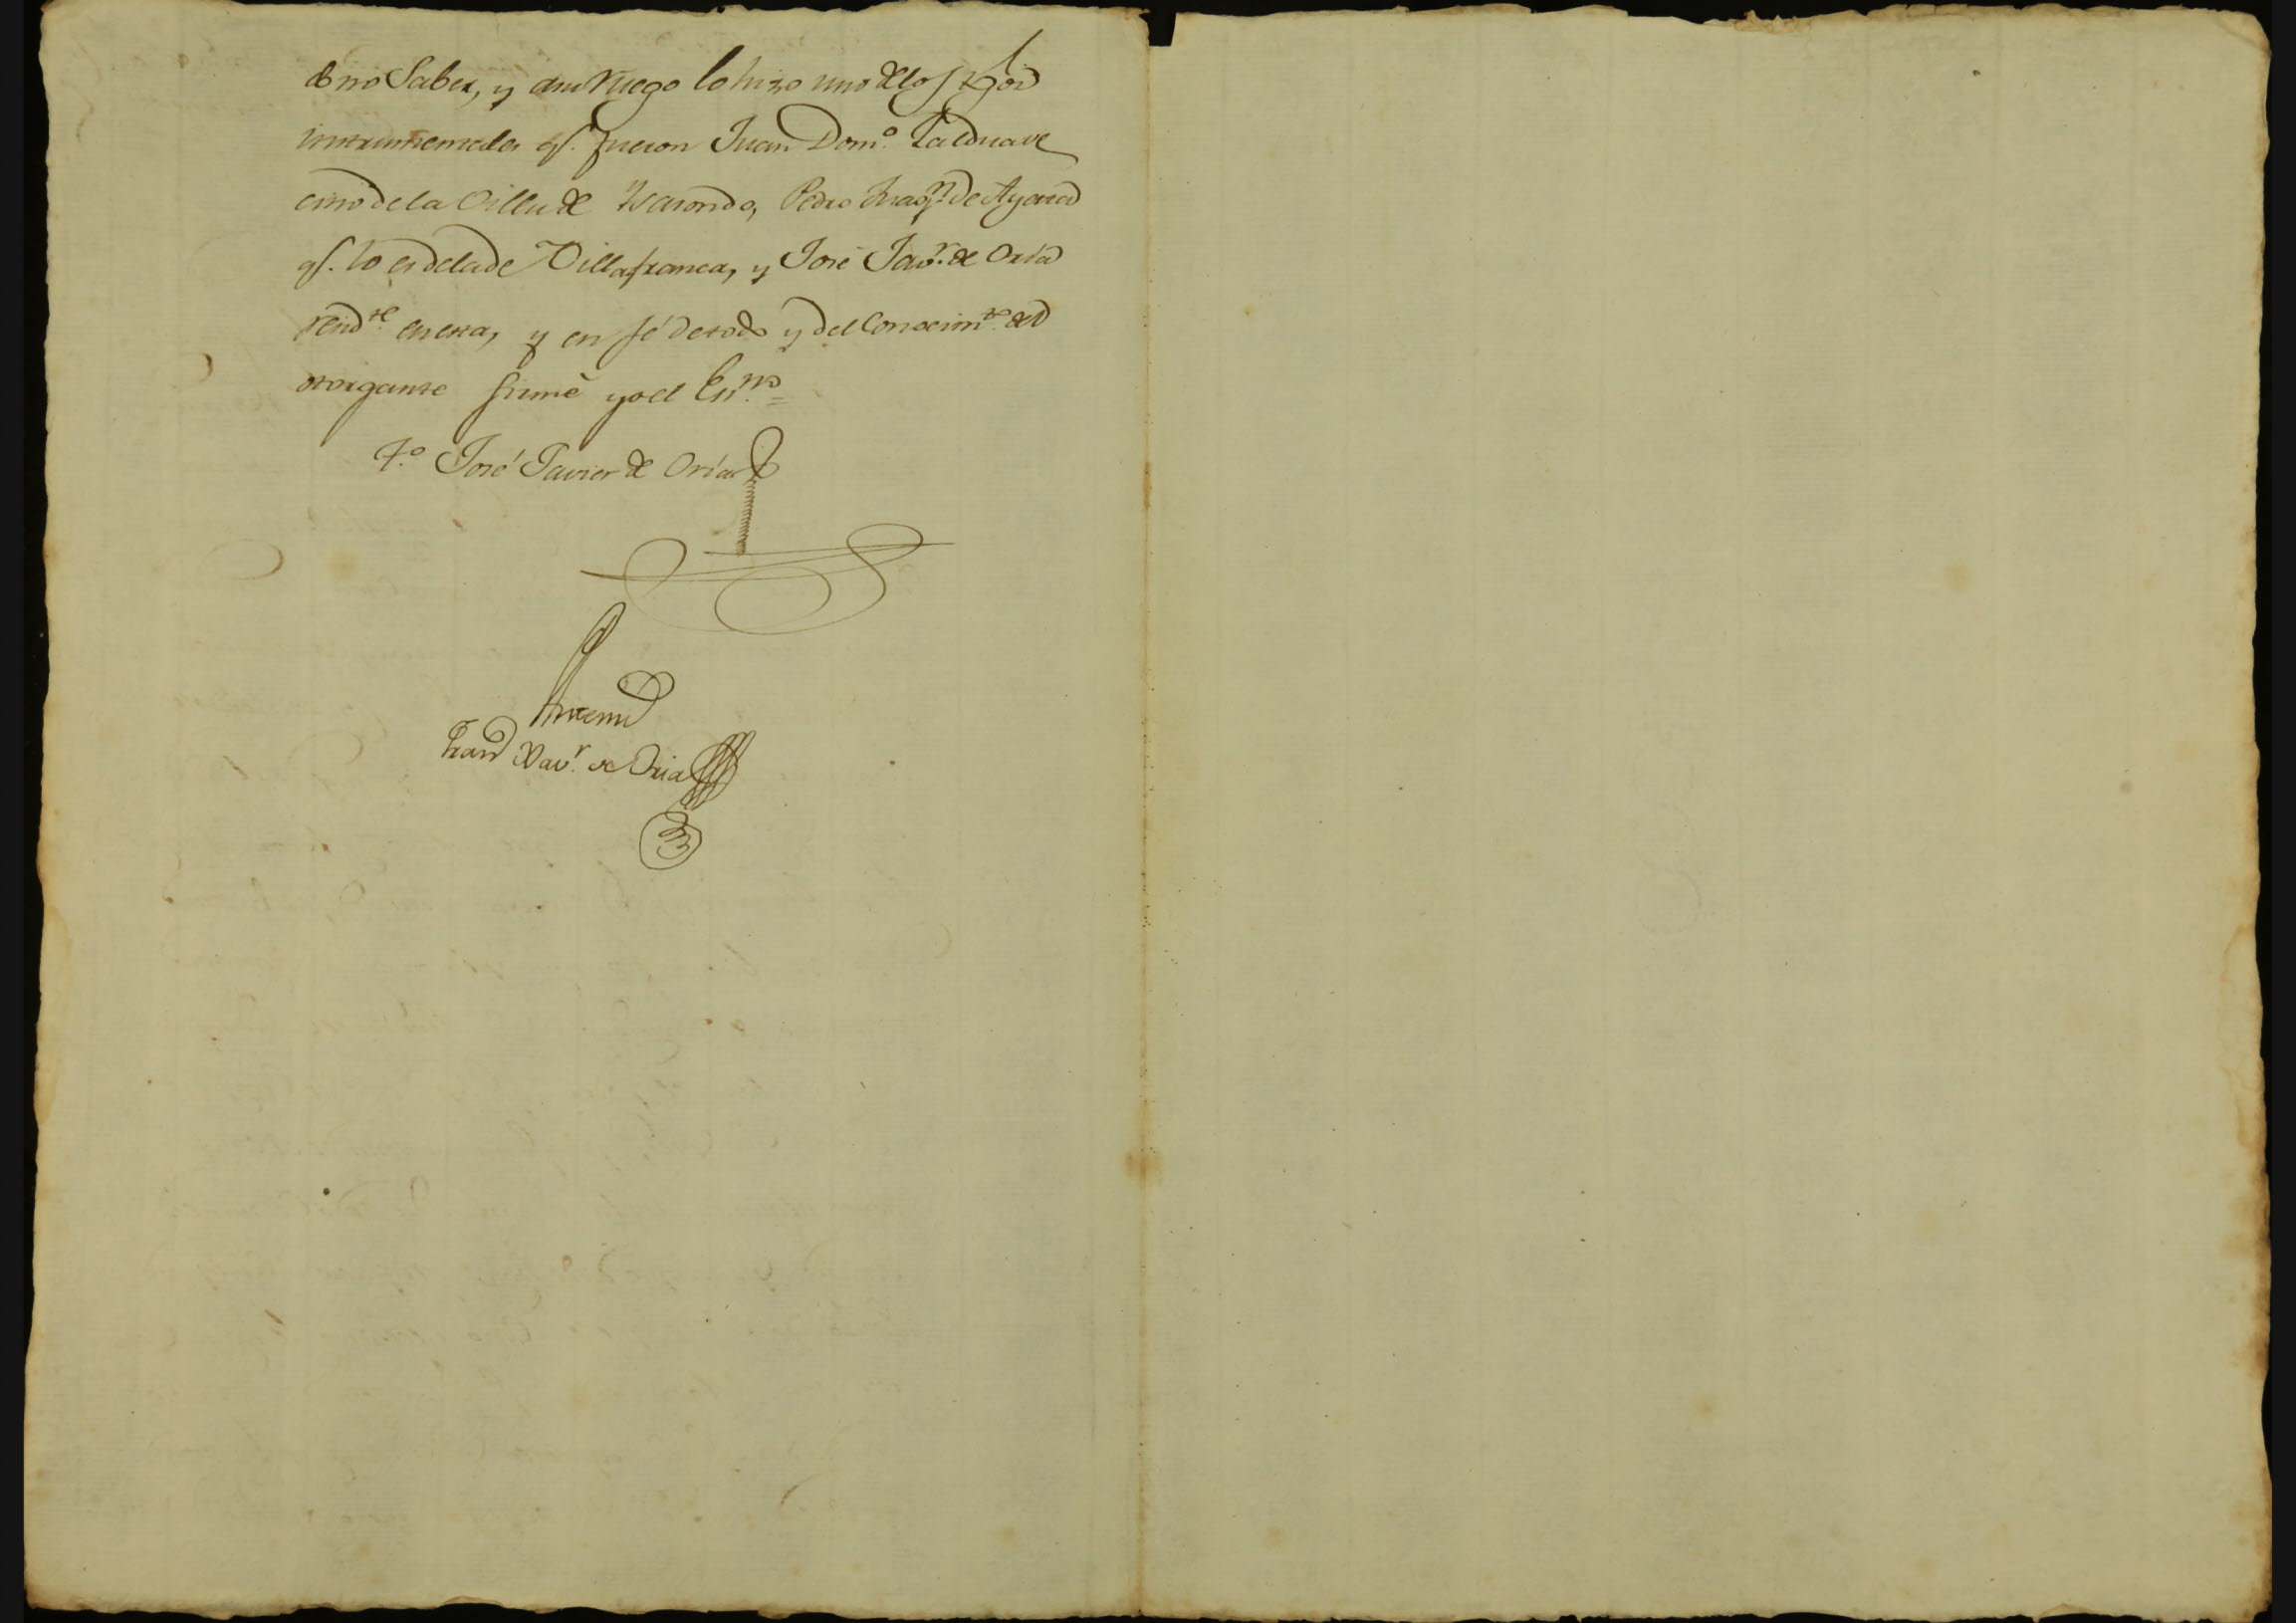 no Saber, y asu ruego lo hizo uno delos tgos
instrumentales q.e fueron Juan Dom.o Zaldua ve
cino dela Villa de Ysasondo, Pedro Fran.co de
q.e lo es delade Villafranca, y José Jav.r de Oria
resid.te enesta, y en fé detodo y del Conocim.to del
otorgante firmé yo el Es.no =
T.o José Javier de Oria
Antemi
Fran.co Xav.r de Oria